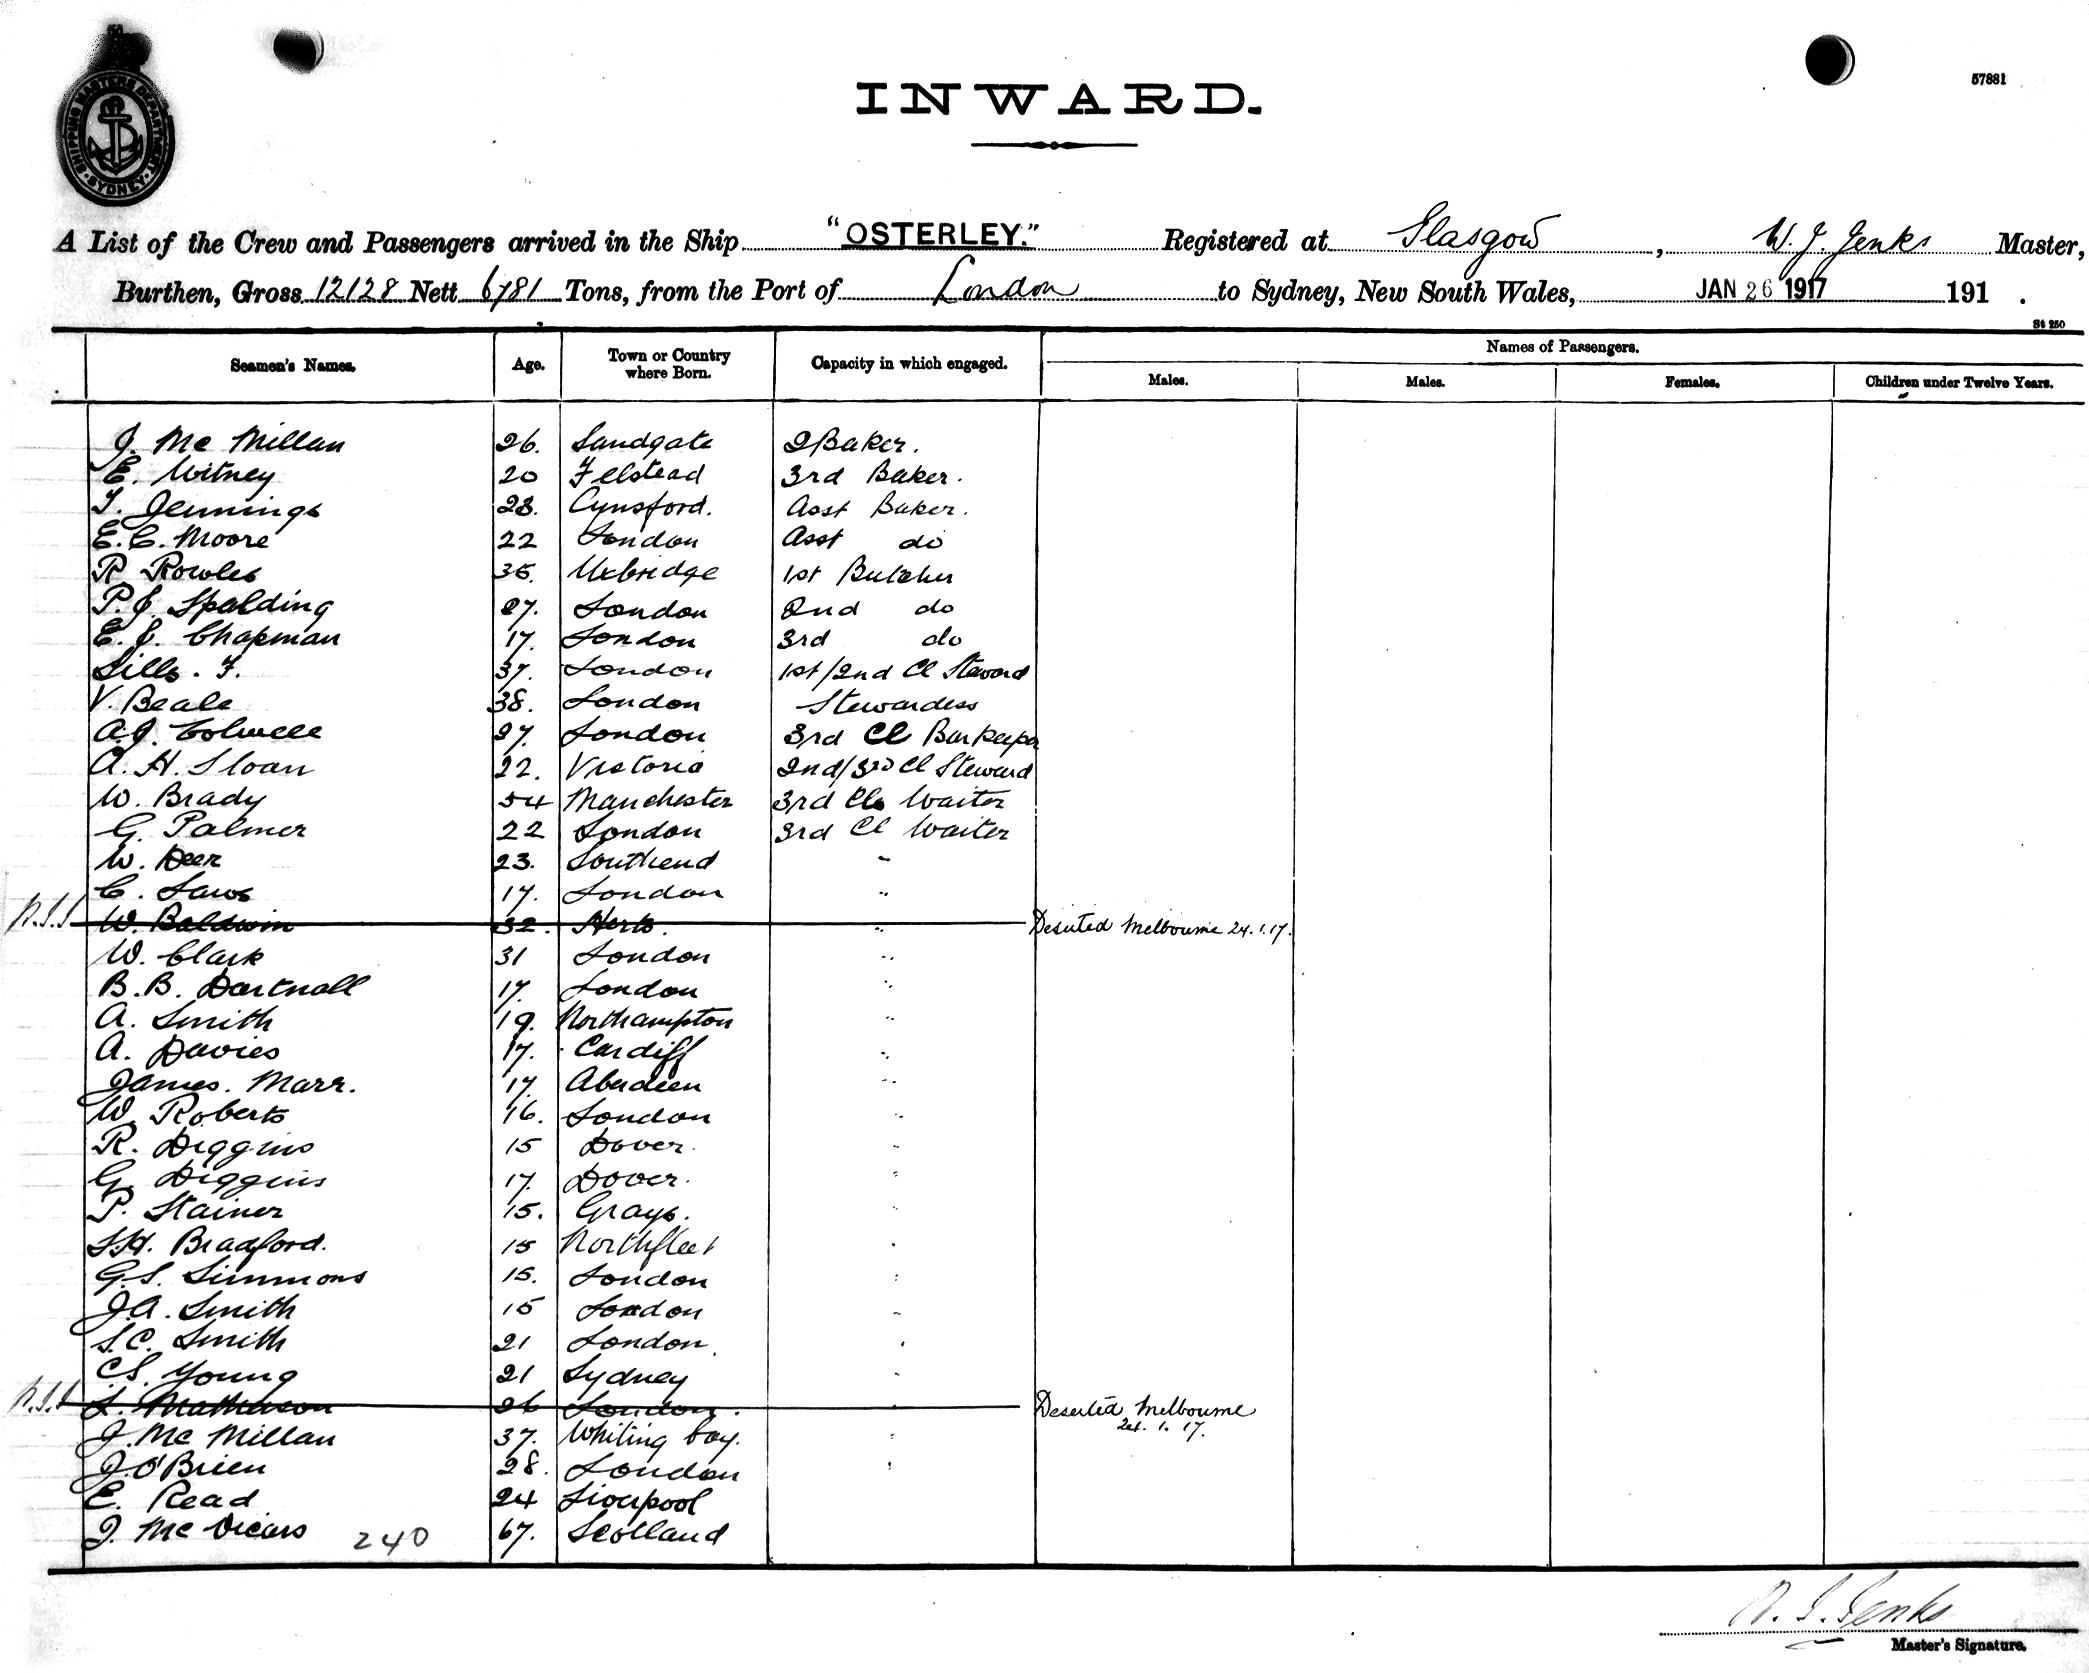 SHIPPING MASTERS DEPARTMENT SYDNEY
57881
INWARD.
A List of the Crew and Passengers arrived in the Ship "OSTERLEY." Registered at Glasgow, W. J. Jenks Master,
Burthen, Gross 12128 Nett 6781 Tons, from the Port of London to Sydney, New South Wales, JAN 26 1917 191 .
St 250
Seamen's Names. Age. Town or Country where Born. Capacity in which engaged. Names of Passengers.
Males. Males. Females. Children under Twelve Years.
J. Mc Millan 26. Sandgate 2 Baker.
E. Witney 20 Felstead 3rd Baker.
T. Jennings 23. Eynsford. Asst Baker.
E. C. Moore 22 London Asst do
R Rowles 35. Uxbridge 1st Butcher
P. J. Spalding 27. London 2nd do
E. J. Chapman 17. London 3rd do
Sills. F. 37. London 1st/2nd Cl Steward
V. Beale 38. London Stewardess
A.J. Colwell 27. London 3rd Cl Barkeeper
A. H. Sloan 22. Victoria 2nd/3rd Cl Steward
W. Brady 54 Manchester 3rd Cls Waiter
G. Palmer 22 London 3rd Cl Waiter
W. Deer 23. Southend "
C. Laws 17. London "
W. Baldwin 32. Herts. " Deserted Melbourne 24.1.17.
W. Clark 31 London "
B.B. Dartnall 17. London "
A. Smith 19. Northampton "
A. Davies 17. Cardiff "
James. Marr. 17. Aberdeen "
W. Roberts 16. London "
R. Diggins 15 Dover. "
G. Diggins 17. Dover. "
P. Stainer 15. Grays. "
S.H. Bradford. 15 Northfleet "
G.S. Simmons 15. London "
J.A. Smith 15 London "
S.C. Smith 21 London. "
C.S. Young 21 Sydney "
L. Mathieson 26 London. " Deserted Melbourne
24. 1. 17.
J. Mc Millan 37. Whiting bay. "
J. O'Brien 28. London "
E. Read 24 Liverpool
J. Mc Vicars 240 67. Scotland
W. J. Jenks
Master's Signature.